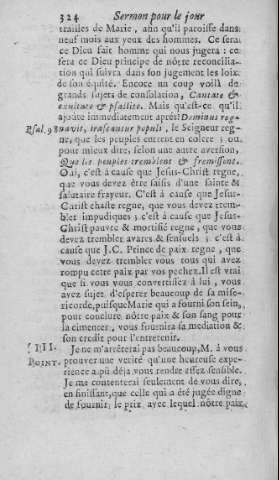 324 Sermon pour le jour
trailles de Marie, afin qu'il paroisse dans
neuf mois aux yeux des hommes. Ce sera
ce Dieu fait homme qui nous jugera : ce
sera ce Dieu principe de nôtre reconcilia-
tion qui suivra dans son jugement les loix
de son équité. Encore un coup voilà de
grands sujets de consolation, Cantate &
exultate & psallite. Mais qu'est-ce qu'il
ajoûte immediatement aprés? Dominus reg-
Psal. 98 navit, irascantur populi, le Seigneur reg-
ne; que les peuples entrent en colere ; ou,
pour mieux dire, selon une autre version,
Que les peuples tremblent & fremissent.
Oui, c'est à cause que Jesus-Christ regne,
que vous devez être saisis d'une sainte &
salutaire frayeur. C'est à cause que Jesus-
Christ chaste regne, que vous devez trem-
bler impudiques ; c'est à cause que Jesus-
Christ pauvre & mortifié regne, que vous
devez trembler avares & sensuels ; c'est à
cause que J.C. Prince de paix regne, que
vous devez trembler vous tous qui avez
rompu cette paix par vos pechez. Il est vrai
que si vous vous convertissez à lui, vous
avez sujet d'esperer beaucoup de sa mise-
ricorde, puisque Marie qui a fourni son sein,
pour conclure nôtre paix & son sang pour
la cimenter, vous fournira sa mediation &
son credit pour l'entretenir.
III. Je ne m'arrêterai pas beaucoup, M. à vous
POINT. prouver une verité qu'une heureuse expe-
rience a pû déja vous rendre assez sensible.
Je me contenterai seulement de vous dire,
en finissant, que celle qui a été jugée digne
de fournir le prix avec lequel nôtre paix